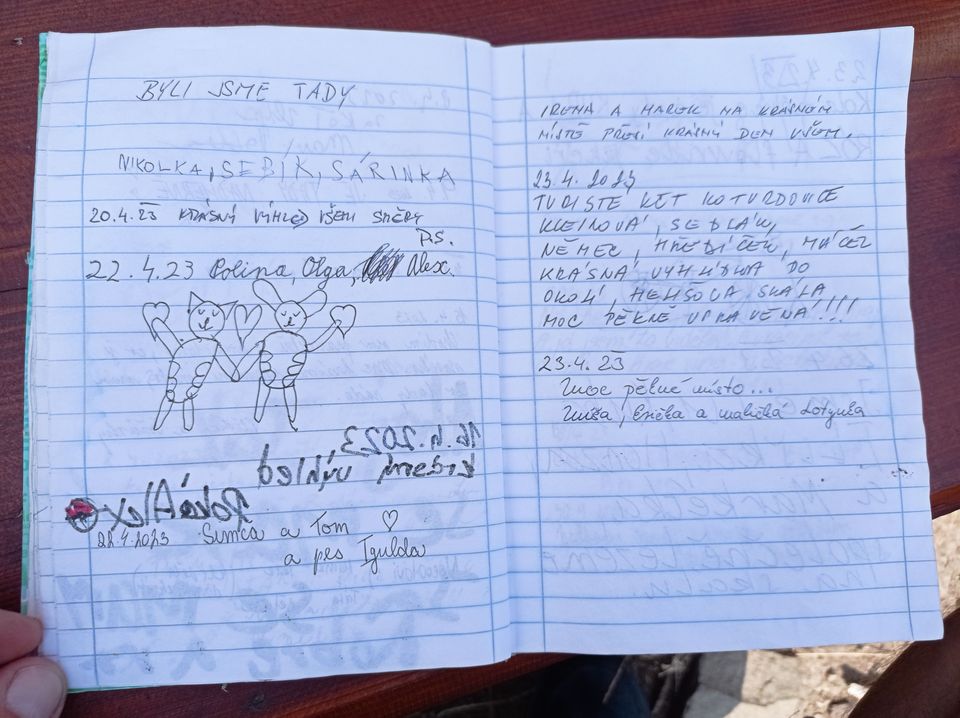 BYLI JSME TADY
NIKOLKA, SEBÍK, SÁRINKA
20.4.23 KRÁSNÝ VÝHLED VŠEMI SMĚRY
P.S.
22.4.23 Polina, Olga, Alex.
16.4.2023
krásný výhled
Alex
22.4.2023 Simča a Tom ♡
a pes Igulda
IRENA A MAREK NA KRÁSNÉM
MÍSTĚ PŘEJÍ KRÁSNÝ DEN VŠEM.
23.4.2023
TURISTÉ KČT KOTVRDOVICE
KLEINOVÁ, SEDLÁK,
NĚMEC, HŘEDÍČEK, MÁČEL
KRÁSNÁ VYHLÍDKA DO
OKOLÍ, HELIŠOVA SKÁLA
MOC PĚKNĚ UPRAVENÁ!!!
23.4.23
Moc pěkné místo...
Míša, a maličká